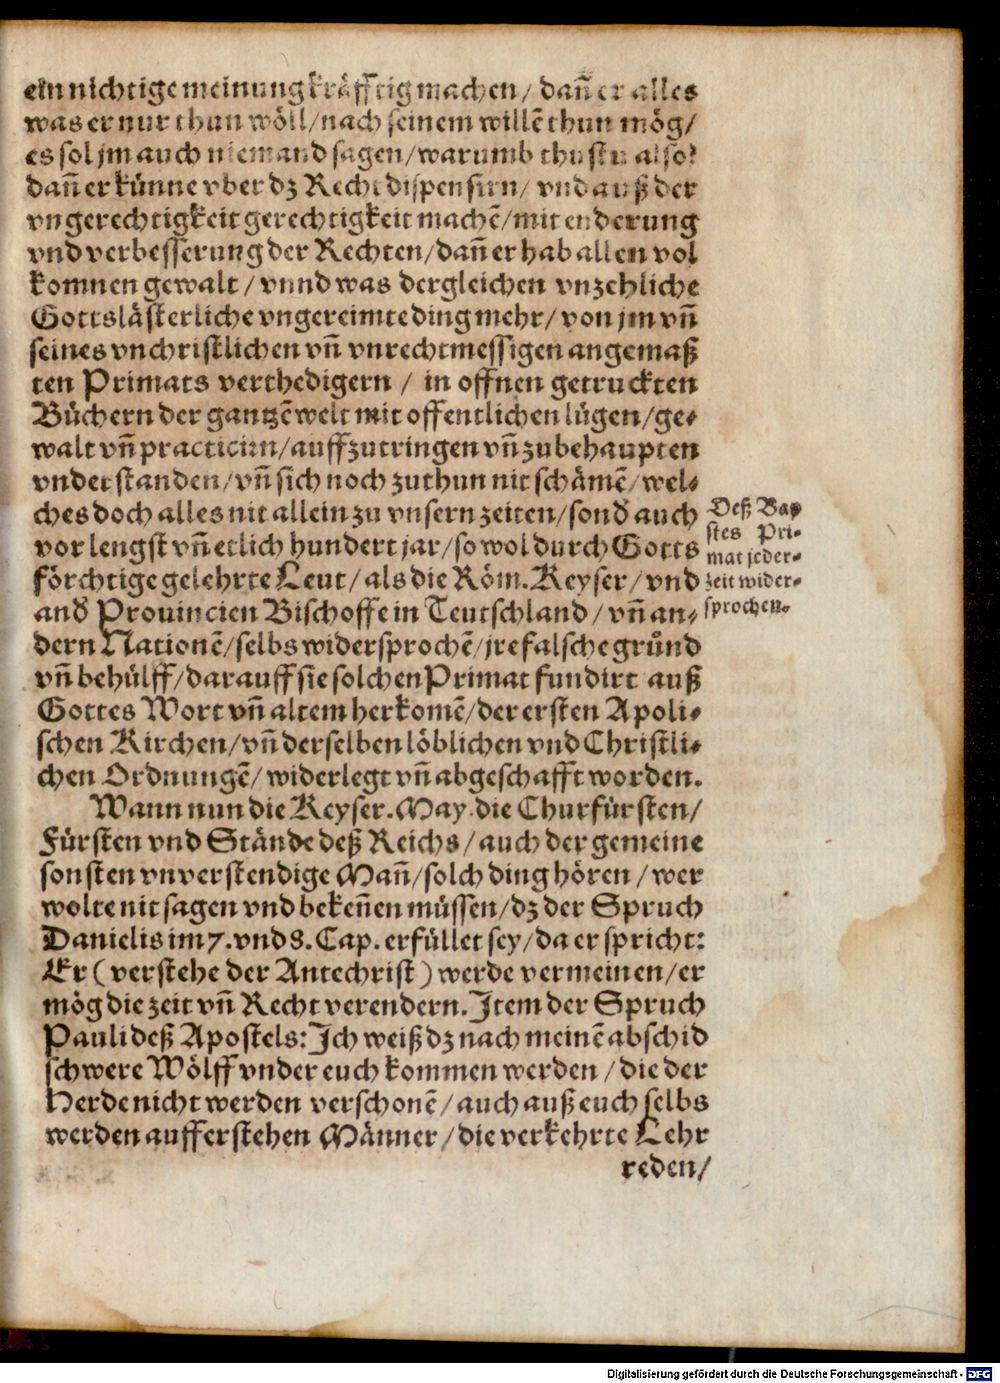 ein nichtige meinung kräfftig machen / dañ er alles
was er nur thun wöll / nach seinem willẽ thun mög /
es sol jm auch niemand sagen / warumb thustu also?
dañ er künne vber dz Recht dispensirn / vnd auß der
vngerechtigkeit gerechtigkeit machẽ / mit enderung
vnd verbesserung der Rechten / dañ er hab allen vol
komnen gewalt / vnnd was dergleichen vnzehliche
Gottslästerliche vngereimte ding mehr / von jm vñ
seines vnchristlichen vñ vnrechtmessigen angemaß
ten Primats verthedigern / in offnen getruckten
Büchern der gantzẽ welt mit offentlichen lügen / ge-
walt vñ practicirn / auffzutringen vñ zubehaupten
vnderstanden / vñ sich noch zuthun nit schämẽ / wel-
ches doch alles nit allein zu vnsern zeiten / sond̕ auch
vor lengst vñ etlich hundert jar / so wol durch Gotts
förchtige gelehrte Leut / als die Röm. Keyser / vnd
and̕ Prouincien Bischoffe in Teutschland / vñ an-
dern Nationẽ / selbs widersprochẽ / jre falsche gründ
vñ behülff / darauff sie solchen Primat fundirt auß
Gottes Wort vñ altem herkomẽ / der ersten Apoli-
schen Kirchen / vñ derselben löblichen vnd Christli-
chen Ordnungẽ / widerlegt vñ abgeschafft worden.
Deß Bap
stes Pri-
mat jeder-
zeit wider-
sprochen.
Wann nun die Keyser. May. die Churfürsten /
Fürsten vnd Stände deß Reichs / auch der gemeine
sonsten vnverstendige Mañ / solch ding hören / wer
wolte nit sagen vnd bekeñen müssen / dz der Spruch
Danielis im 7. vnd 8. Cap. erfüllet sey / da er spricht:
Er ( verstehe der Antechrist ) werde vermeinen / er
mög die zeit vñ Recht verendern. Item der Spruch
Pauli deß Apostels: Ich weiß dz nach meinẽ abschid
schwere Wölff vnder euch kommen werden / die der
Herde nicht werden verschonẽ / auch auß euch selbs
werden aufferstehen Männer / die verkehrte Lehr
reden /
Digitalisierung gefördert durch die Deutsche Forschungsgemeinschaft - DFG